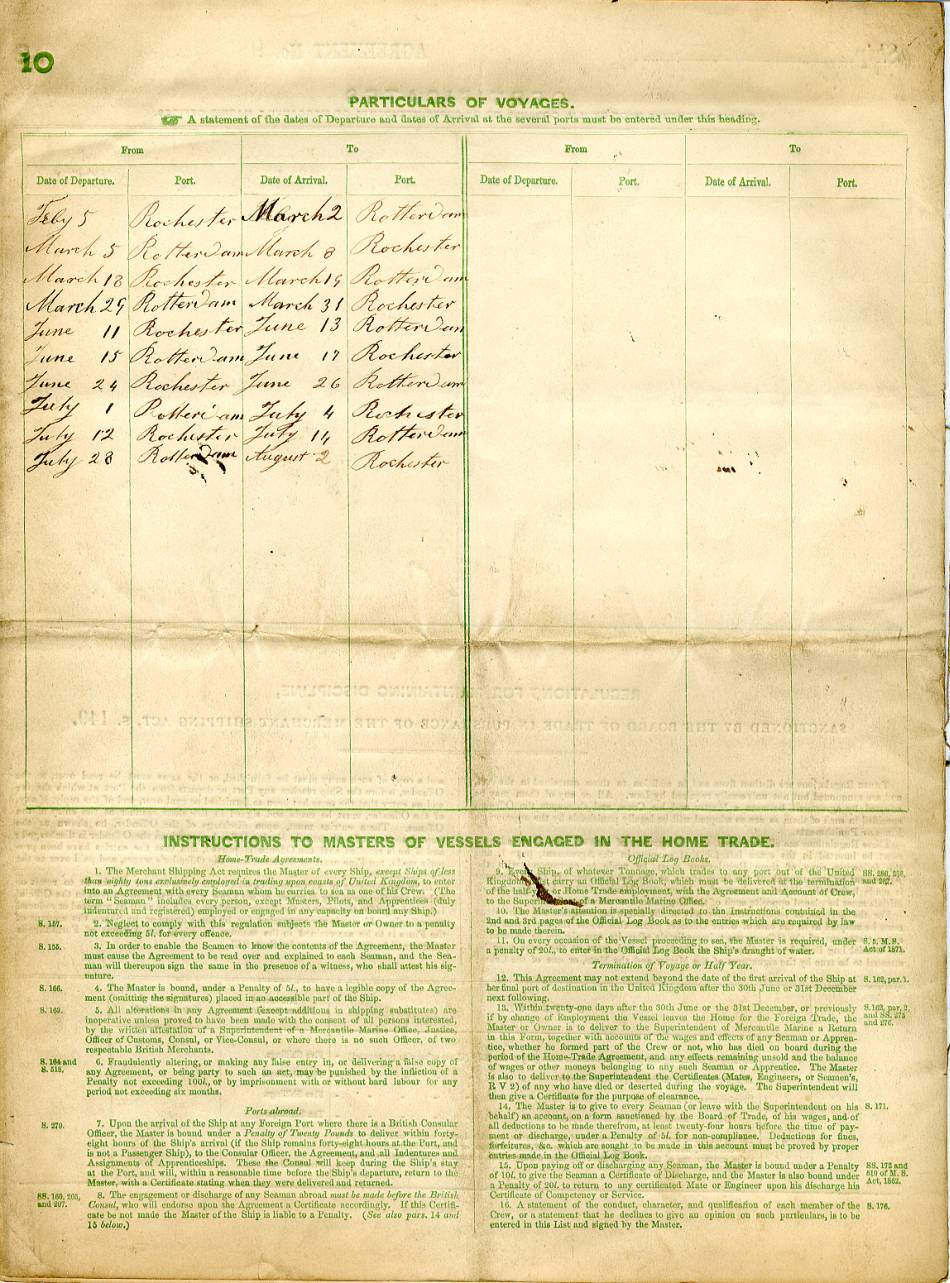 10
PARTICULARS OF VOYAGES.
A statement of the dates of Departure and dates of Arrival at the several ports must be entered under this heading.
From To From To
Date of Departure. Port. Date of Arrival. Port. Date of Departure. Port. Date of Arrival. Port.
Feby 5 Rochester March 2 Rotterdam
March 5 Rotterdam March 8 Rochester
March 18 Rochester March 19 Rotterdam
March 29 Rotterdam March 31 Rochester
June 11 Rochester June 13 Rotterdam
June 15 Rotterdam June 17 Rochester
June 24 Rochester June 26 Rotterdam
July 1 Rotterdam July 4 Rochester
July 12 Rochester July 14 Rotterdam
July 28 Rotterdam August 2 Rochester
INSTRUCTIONS TO MASTERS OF VESSELS ENGAGED IN THE HOME TRADE.
Home-Trade Agreements.
1. The Merchant Shipping Act requires the Master of every Ship, except Ships of less
than eighty tons exclusively employed in trading upon coasts of United Kingdom, to enter
into an Agreement with every Seaman whom he carries to sea as one of his Crew. (The
term "Seaman" includes every person, except Masters, Pilots, and Apprentices (duly
indentured and registered) employed or engaged in any capacity on board any Ship.)
S. 157. 2. Neglect to comply with this regulation subjects the Master or Owner to a penalty
not exceeding 5l. for every offence.
S. 155. 3. In order to enable the Seamen to know the contents of the Agreement, the Master
must cause the Agreement to be read over and explained to each Seaman, and the Sea-
man will thereupon sign the same in the presence of a witness, who shall attest his sig-
nature.
S. 166. 4. The Master is bound, under a Penalty of 5l., to have a legible copy of the Agree-
ment (omitting the signatures) placed in an accessible part of the Ship.
S. 163. 5. All alterations in any Agreement (except additions in shipping substitutes) are
inoperative unless proved to have been made with the consent of all persons interested,
by the written attestation of a Superintendent of a Mercantile Marine Office, Justice,
Officer of Customs, Consul, or Vice-Consul, or where there is no such Officer, of two
respectable British Merchants.
S. 164 and S. 518. 6. Fraudently altering, or making any false entry in, or delivering a false copy of
any Agreement, or being party to such an act, may be punished by the infliction of a
Penalty not exceeding 100l., or by imprisonment with or without hard labour for any
period not exceeding six months.
Ports abroad.
S. 279. 7. Upon the arrival of the Ship at any Foreign Port where there is a British Consular
Officer, the Master is bound under a Penalty of Twenty Pounds to deliver within forty-
eight hours of the Ship's arrival (if the Ship remains forty-eight hours at the Port, and
is not a Passenger Ship), to the Consular Officer, the Agreement, and all Indentures and
Assignments of Apprenticeships. These the Consul will keep during the Ship's stay
at the Port, and will, within a reasonable time before the Ship's departure, return to the
Master, with a Certificate stating when they were delivered and returned.
SS. 160, 205, and 207. 8. The engagement or discharge of any Seaman abroad must be made before the British
Consul, who will endorse upon the Agreement a Certificate accordingly. If this Certifi-
cate be not made the Master of the Ship is liable to a Penalty. (See also pars. 14 and
15 below.)
Official Log Books.
9. Every Ship, of whatever Tonnage, which trades to any port out of the United
Kingdom must carry an Official Log Book, which must be delivered at the termination
of the half-year or Home Trade employment, with the Agreement and Account of Crew,
to the Superintendent of a Mercantile Marine Office.
10. The Master's attention is specially directed to the Instructions contained in the
2nd and 3rd pages of the Official Log Book as to the entries which are required by law
to be made therein.
11. On every occasion of the Vessel proceeding to sea, the Master is required, under S. 5, M.S.
a penalty of 20l., to enter in the Official Log Book the Ship's draught of water. Act of 1871.
Termination of Voyage or Half Year.
12. This Agreement may not extend beyond the date of the first arrival of the Ship at S. 163, par. 1.
her final port of destination in the United Kingdom after the 30th June or 31st December
next following.
13. Within twenty-one days after the 30th June or the 31st December, or previously S. 163, par. 2,
if by change of Employment the Vessel leaves the Home for the Foreign Trade, the and SS. 275
Master or Owner is to deliver to the Superintendent of Mercantile Marine a Return and 276.
in this Form, together with accounts of the wages and effects of any Seaman or Appren-
tice, whether he formed part of the Crew or not, who has died on board during the
period of the Home-Trade Agreement, and any effects remaining unsold and the balance
of wages or other moneys belonging to any such Seaman or Apprentice. The Master
is also to deliver to the Superintendent the Certificates (Mates, Engineers, or Seamen's,
R V 2) of any who have died or deserted during the voyage. The Superintendent will
then give a Certificate for the purpose of clearance.
14. The Master is to give to every Seaman (or leave with the Superintendent on his S. 171.
behalf) an account, on a form sanctioned by the Board of Trade, of his wages, and of
all deductions to be made therefrom, at least twenty-four hours before the time of pay-
ment or discharge, under a Penalty of 5l. for non-compliance. Deductions for fines,
forfeitures, &c. which are sought to be made in this account must be proved by proper
entries made in the Official Log Book.
15. Upon paying off or discharging any Seaman, the Master is bound under a Penalty SS. 172 and
of 10l., to give the Seaman a Certificate of Discharge, and the Master is also bound under
a Penalty of 20l. to return to any certificated Mate or Engineer upon his discharge his Act, 1862.
Certificate of Competency or Service.
16. A statement of the conduct, character, and qualification of each member of the S. 176.
Crew, or a statement that he declines to give an opinion on such particulars, is to be
entered in this List and signed by the Master.